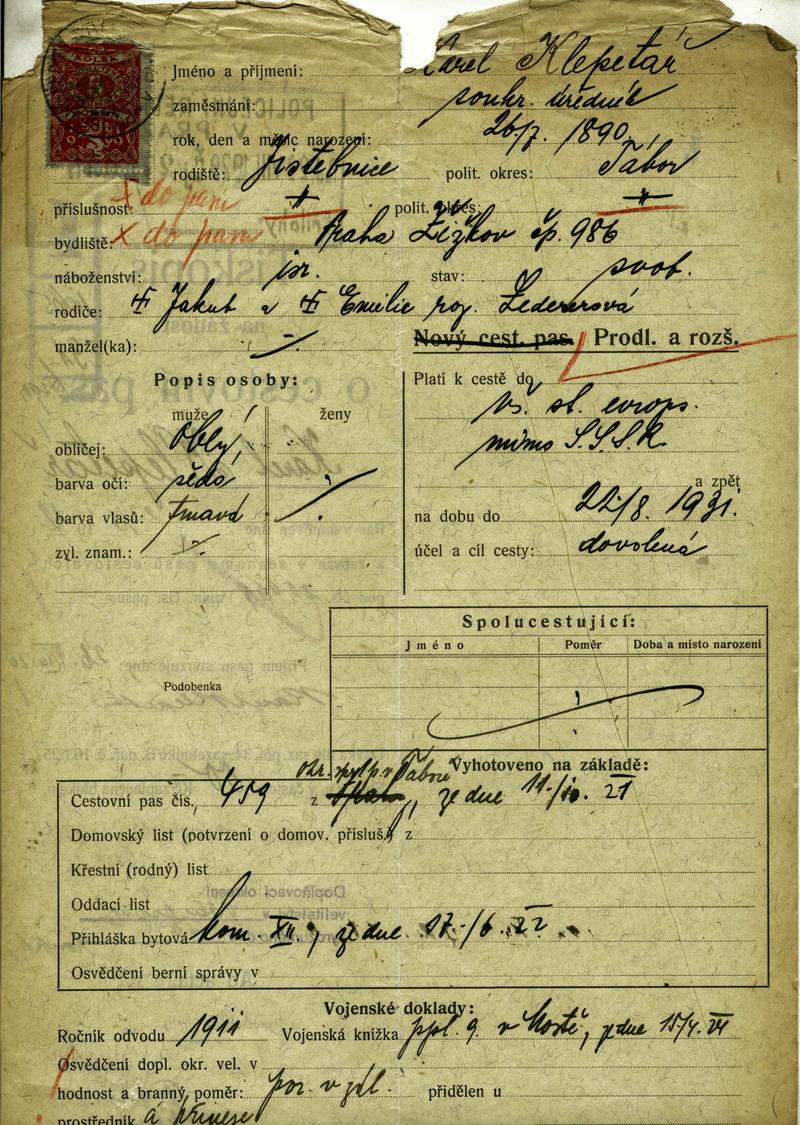 Jméno a příjmení: Karel Klepetář
zaměstnání: soukr. úředník
rok, den a měsíc narození: 26/7. 1890.
rodiště: Jistebnice polit. okres: Tábor
příslušnost: X do pam " polit. okres: "
bydliště: X do pam Praha Žižkov čp. 986
náboženství: isr. stav: svob.
rodiče: Jakub a Emilie roz. Ledererová
manžel(ka): —.
Nový cest. pas. Prodl. a rozš.
Popis osoby:
muže ženy
obličej: oblý
barva očí: šedá
barva vlasů: tmavá
zvl. znam.:
Platí k cestě do
vš. st. evrops.
mimo S.S.S.R.
a zpět
na dobu do 22/8. 1931.
účel a cíl cesty: dovolená
Spolucestující:
Jméno Poměr Doba a místo narození
Podobenka
Vyhotoveno na základě:
Cestovní pas čís. 459 z v Táboře, ze dne 11./ 21
Domovský list (potvrzení o domov. přísluš.) z
Křestní (rodný) list
Oddací list
Přihláška bytová kom. XII., ze dne 17./6. 22
Osvědčení berní správy v
Vojenské doklady:
Ročník odvodu 1911 Vojenská knížka ppl. 9. v Mostě, ze dne 15/4. 21
Osvědčení dopl. okr. vel. v
hodnost a branný poměr: por. v zál. přidělen u
prostředník á přinese